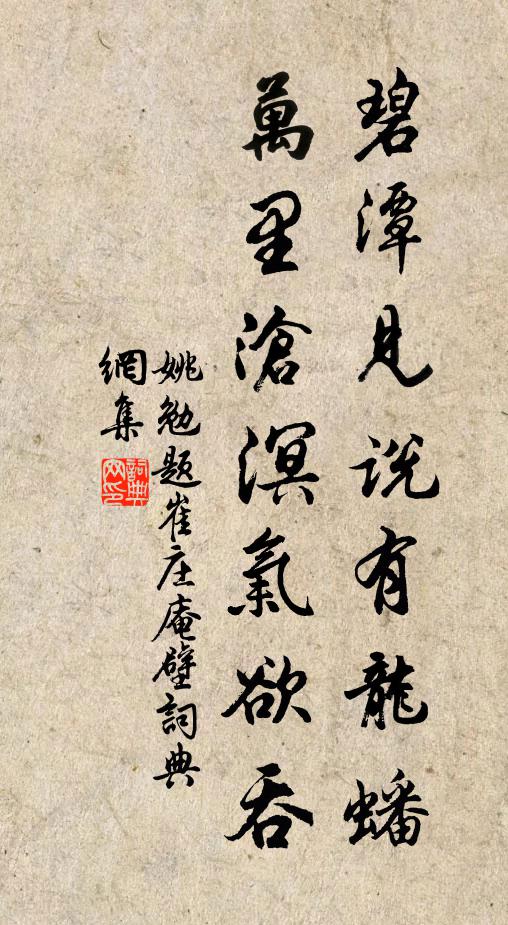 碧潭見説有龍蟠
萬里滄溟氣欲吞
姚勉题崔庄庵壁詞典
網集
詞典
网印